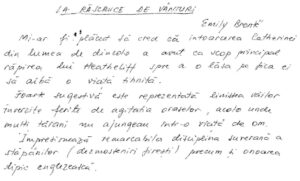 LA RĂSCRUCE DE VÂNTURI
Emily Brontë
Mi-ar fi plăcut să cred că întoarcerea Catherinei
din lumea de dincolo a avut ca scop principal
răpirea lui Heathcliff spre a o lăsa pe fiica ei
să aibă o viață tihnită.
Foarte sugestivă este reprezentată liniștea văilor
înverzite ferite de agitația orașelor, acolo unde
mulți țărani nu ajungeau într-o viață de om.
Impresionează remarcabila disciplina
stăpânilor (dezmoșteniri firești) precum și onoarea
tipic englezească.